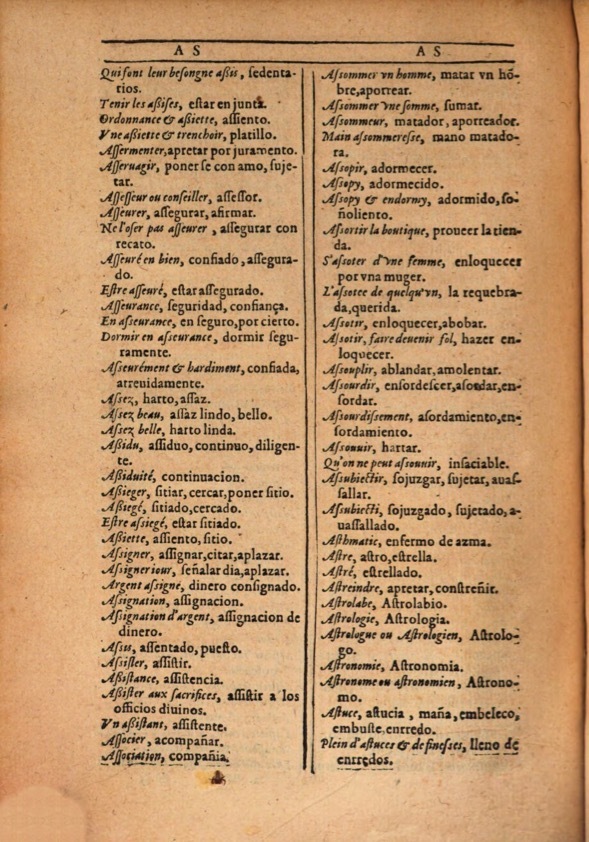 A S
Qui font leur beſongne aßis, ſedenta-
rios.
Tenir les aßiſes, eſtar en junta.
Ordonnance & aßiette, aſſiento.
Vne aßiette & trenchoir, platillo.
Aſſermenter, apretar por juramento.
Aſſeruagir, poner ſe con amo, ſuje-
tar.
Aſſeſſeur ou conſeiller, aſſeſſor.
Aſſeurer, aſſegurar, afirmar.
Ne l'oſer pas aſſeurer, aſſegurar con
recato.
Aſſeuré en bien, confiado, aſſegura-
do.
Eſtre aſſeuré, eſtar aſſegurado.
Aſſeurance, ſeguridad, confiança.
En aſseurance, en ſeguro, por cierto.
Dormir en aſseurance, dormir ſegu-
ramente.
Aſseurément & hardiment, confiada,
atreuidamente.
Aſsez, harto, aſſaz.
Aſsez beau, aſſaz lindo, bello.
Aſsez belle, harto linda.
Aßidu, aſſiduo, continuo, diligen-
te.
Aßiduité, continuacion.
Aßieger, sitiar, cercar, poner ſitio.
Aßiegé, ſitiado, cercado.
Eſtre aſsiegé, eſtar ſitiado.
Aßiette, aſſiento, ſitio.
Aſsigner, aſſignar, citar, aplazar.
Aſsigner iour, ſeñalar dia, aplazar.
Argent aſsigné, dinero conſignado.
Aſsignation, aſſignacion.
Aſsignation d'argent, aſſignacion de
dinero.
Aſsis, aſſentado, pueſto.
Aſsiſter, aſſiſtir.
Aßiſtance, aſſiſtencia.
Aßiſter aux ſacrifices, aſſiſtir a los
officios diuinos.
Vn aßiſtant, aſſiſtente.
Aſſocier, acompañar.
Aſſociation, compañia.
A S
Aſsommer vn homme, matar vn hõ-
bre, aporrear.
Aſsommer vne ſomme, ſumar.
Aſsommeur, matador, aporreador.
Main aſsommereſſe, mano matado-
ra.
Aſsopir, adormecer.
Aſsopy, adormecido.
Aſsopy & endormy, adormido, ſo-
ñoliento.
Aſsortir la boutique, proueer la tien-
da.
S'aſsoter d'vne femme, enloquecer
por vna muger.
L'aſsotee de quelqu'vn, la requebra-
da, querida.
Aſsotir, enloquecer, abobar.
Aſsotir, faire deuenir fol, hazer en-
loquecer.
Aſsouplir, ablandar, amolentar.
Aſsourdir, enſordeſcer, aſordar, en-
ſordar.
Aſsourdiſſement, aſordamiento, en-
ſordamiento.
Aſsouuir, hartar.
Qu'on ne peut aſsouuir, inſaciable.
Aſsubiectir, ſojuzgar, ſujetar, auaſ-
ſallar.
Aſsubiecti, ſojuzgado, ſujetado, a-
uaſſallado.
Aſthmatic, enfermo de azma.
Aſtre, aſtro, eſtrella.
Aſtré, eſtrellado.
Aſtreindre, apretar, conſtreñir.
Aſtrolabe, Aſtrolabio.
Aſtrologie, Aſtrologia.
Aſtrologue ou Aſtrologien, Aſtrolo-
go.
Aſtronomie, Aſtronomia.
Aſtronome ou aſtronomien, Aſtrono-
mo.
Aſtuce, aſtucia, maña, embeleco,
embuſte, enrredo.
Plein d'aſtuces & de fineſſes, lleno de
enrredos.